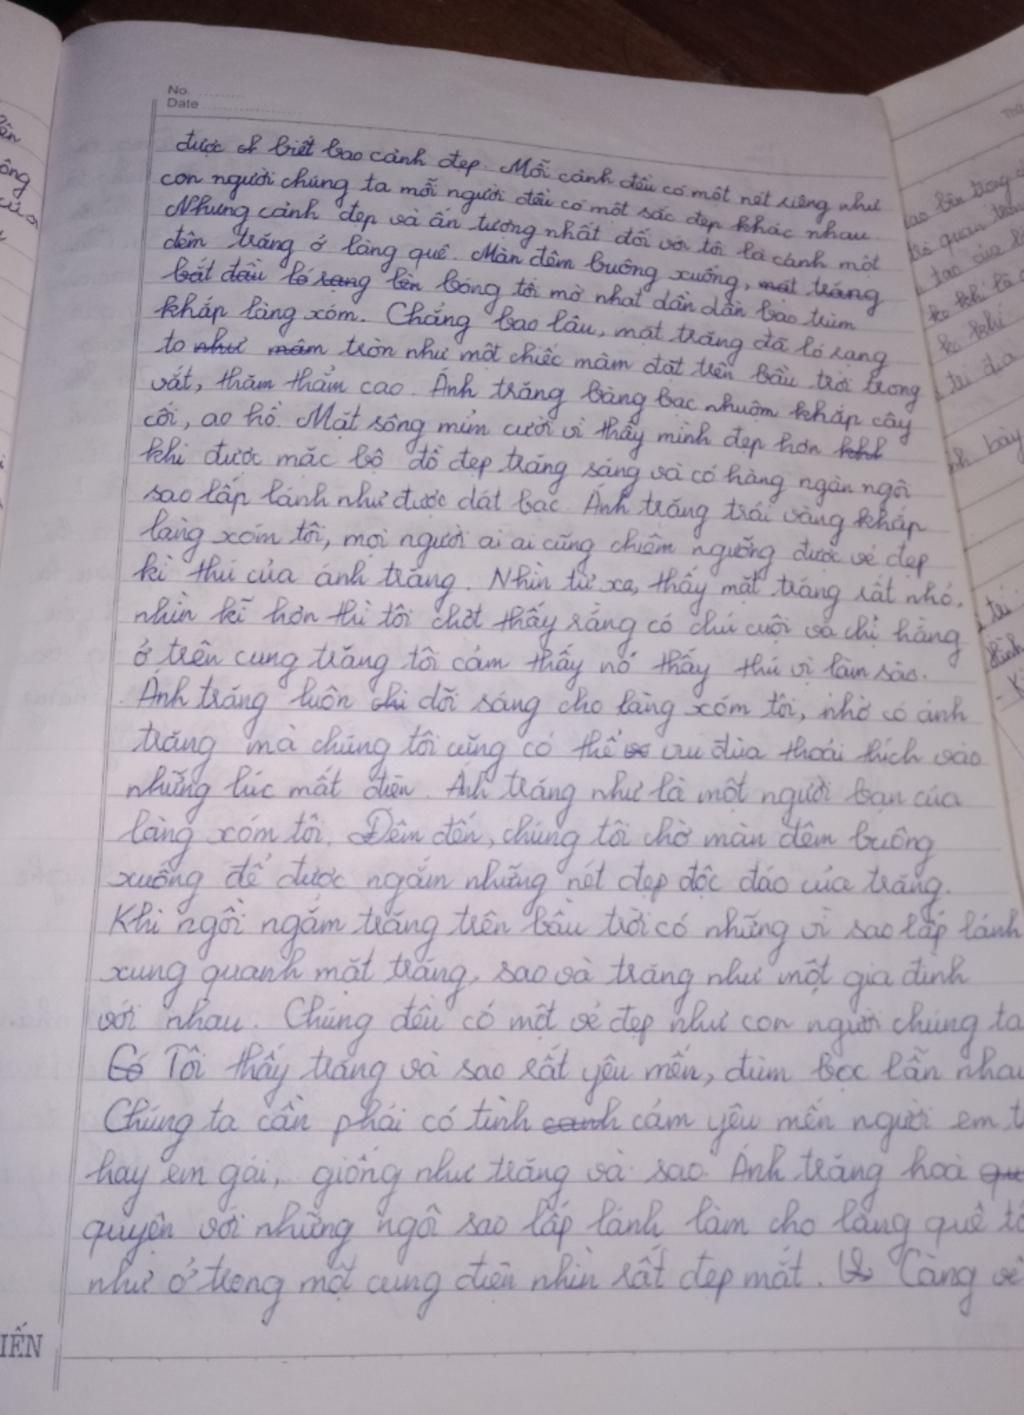 No.
Date
được biết bao cảnh đẹp. Mỗi cảnh đều có một nét riêng như
con người chúng ta mỗi người đều có một sắc đẹp khác nhau.
Nhưng cảnh đẹp và ấn tượng nhất đối với tôi là cảnh một
đêm trăng ở làng quê. Màn đêm buông xuống, mặt trăng
bắt đầu ló rạng lên bóng tối mờ nhạt dần dần bao trùm
khắp làng xóm. Chẳng bao lâu, mặt trăng đã ló rạng
to như mâm tròn như một chiếc mâm đặt trên bầu trời trong
vắt, thăm thẳm cao. Ánh trăng bàng bạc nhuộm khắp cây
cối, ao hồ. Mặt sông mỉm cười vì thấy mình đẹp hơn
khi được mặc bộ đồ đẹp trăng sáng và có hàng ngàn ngôi
sao lấp lánh như được dát bạc. Ánh trăng trải vàng khắp
làng xóm tôi, mọi người ai ai cũng chiêm ngưỡng được vẻ đẹp
kì thú của ánh trăng. Nhìn từ xa, thấy mặt trăng rất nhỏ,
nhìn kĩ hơn thì tôi chợt thấy rằng có chú cuội và chị hằng
ở trên cung trăng tôi cảm thấy nó thấy thú vị làm sao.
Ánh trăng luôn chi dõi sáng cho làng xóm tôi, nhờ có ánh
trăng mà chúng tôi cũng có thể vui đùa thoải thích vào
những lúc mất điện. Ánh trăng như là một người bạn của
làng xóm tôi. Đêm đến, chúng tôi chờ màn đêm buông
xuống để được ngắm những nét đẹp độc đáo của trăng.
Khi ngồi ngắm trăng trên bầu trời có những vì sao lấp lánh
xung quanh mặt trăng, sao và trăng như một gia đình
với nhau. Chúng đều có một vẻ đẹp như con người chúng ta
Có Tôi thấy trăng và sao rất yêu mến, đùm bọc lẫn nhau
Chúng ta cần phải có tình canh cảm yêu mến người em t
hay em gái, giống như trăng và sao. Ánh trăng hoà
quyện với những ngôi sao lấp lánh làm cho làng quê tô
như ở trong một cung điện nhìn rất đẹp mắt. Càng về
IẾN